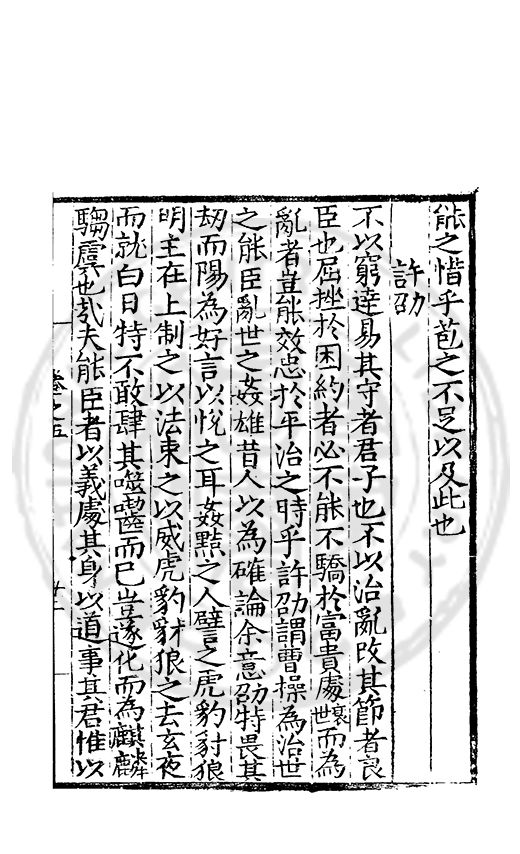 能之惜乎苞之不足以及此也
許劭
不以窮達易其守者君子也不以治亂改其節者良
臣也屈挫於困約者必不能不驕於富貴處衰世而為
亂者豈能效忠於平治之時乎許劭謂曹操為治世
之能臣亂世之姦雄昔人以為確論余意劭特畏其
刼而陽為好言以悅之耳姦黠之人譬之虎豹豺狼
明主在上制之以法束之以威虎豹豺狼之去玄夜
而就白日特不敢肆其噬齧而已豈遂化而為麒麟
騶虞也㢤夫能臣者以義處其身以道事其君惟以
卷之五
廿二